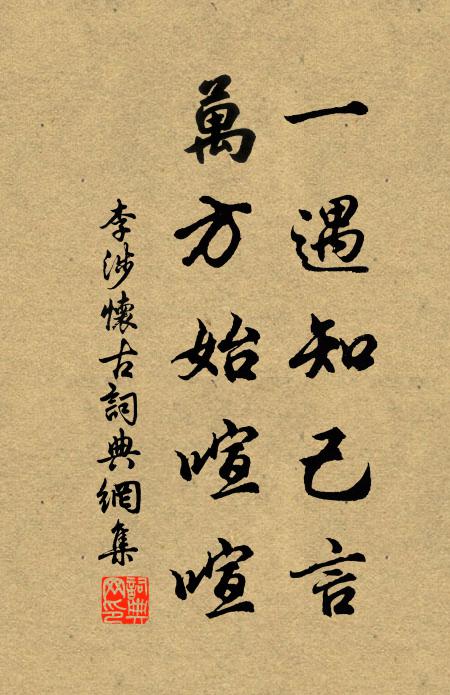 一遇知己言
萬方始喧喧
李涉懷古詞典網集
詞典網印